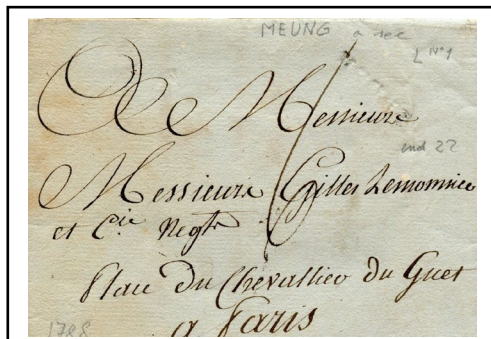 MEUNG a sec
L N°1
A Messieurs
ind 22
Messieurs Gilles Lemonnier
et Cie Negts
Place du Chevallier du Guet
a Paris
1788